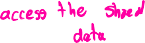 access the shared
data